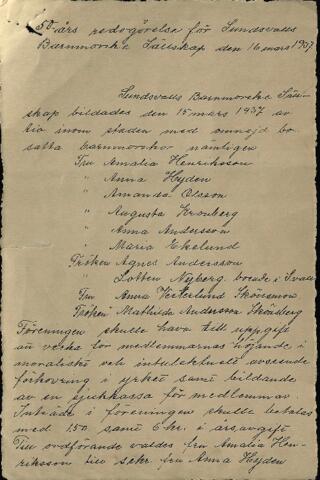 50 års redogörelse för Sundsvalls
Barnmorske Sällskap den 16 mars 1937
Sundsvalls Barnmorske Säll-
skap bildades den 15 mars 1937 av
tio inom staden med omnejd bo-
satta barnmorskor nämligen
Fru Amalia Henriksson
" Anna Hyden
" Amanda Olsson
" Augusta Kronberg
" Anna Andersson
" Maria Ekelund
Fröken Agnes Andersson
" Lotten Nyberg boende i Svall
Fru Anna Vesterlund Skönsmon
Fröken Mathilda Andersson Skönsberg
Föreningen skulle hava till uppgift
att verka för medlemmarnas höjande i
moraliskt och intulektuelt avseende
förkovring i yrket samt bildande
av en sjukkassa för medlemmar.
Inträde i föreningen skulle betalas
med 1.50 samt 6 kr. i årsavgift
Till ordförande valdes fru Amalia Hen-
riksson till sekr. fru Anna Hyden